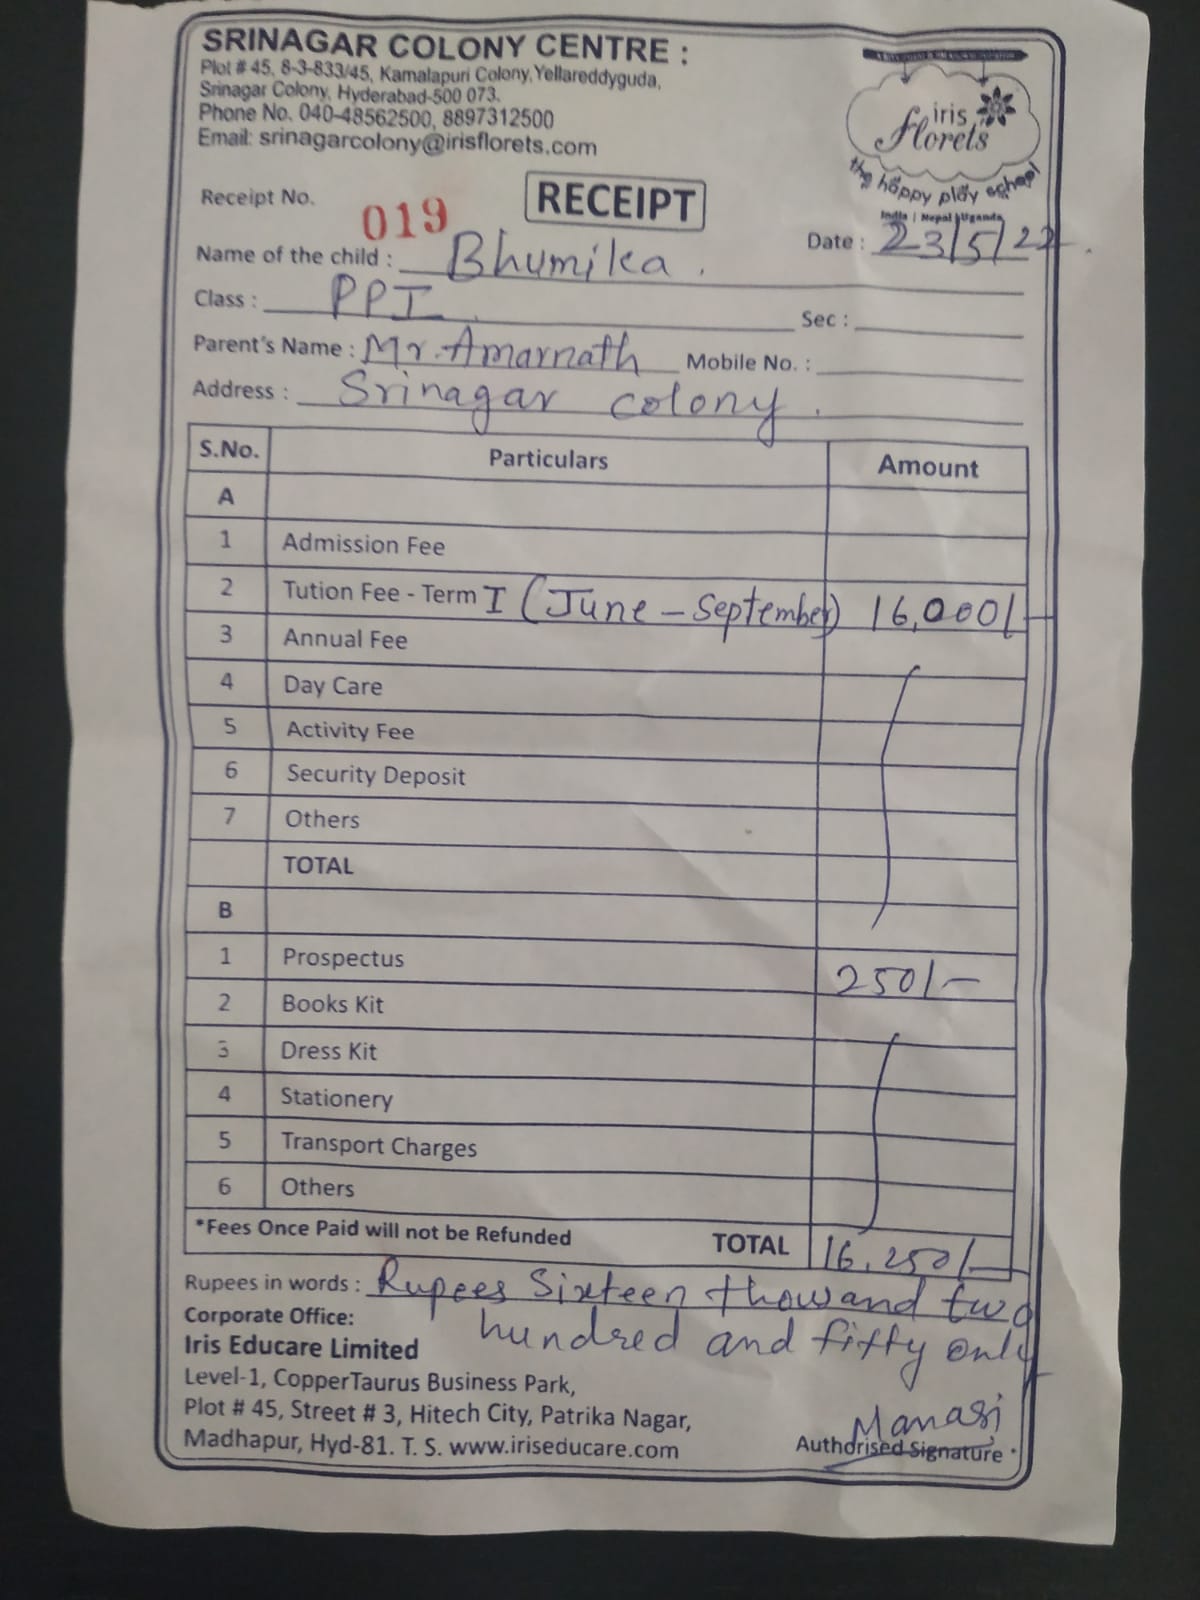 SRINAGAR COLONY CENTRE :
Plot # 45, 8-3-833/45, Kamalapuri Colony, Yellareddyguda,
Srinagar Colony, Hyderabad-500 073.
Phone No. 040-48562500, 8897312500
Email: srinagarcolony@irisflorets.com
iris
florets
the happy play school
India | Nepal | Uganda
Receipt No. 019
RECEIPT
Date : 23/5/22
Name of the child : Bhumika.
Class : PPI
Sec :
Parent's Name : Mr. Amarnath Mobile No. :
Address : Srinagar colony.
S.No. Particulars Amount
A
1 Admission Fee
2 Tution Fee - Term I (June - September) 16,000/-
3 Annual Fee
4 Day Care
5 Activity Fee
6 Security Deposit
7 Others
TOTAL
B
1 Prospectus 250/-
2 Books Kit
3 Dress Kit
4 Stationery
5 Transport Charges
6 Others
*Fees Once Paid will not be Refunded TOTAL 16,250/-
Rupees in words : Rupees Sixteen thousand two
hundred and fifty only
Corporate Office:
Iris Educare Limited
Level-1, CopperTaurus Business Park,
Plot # 45, Street # 3, Hitech City, Patrika Nagar,
Madhapur, Hyd-81. T. S. www.iriseducare.com
Manasi
Authorised Signature